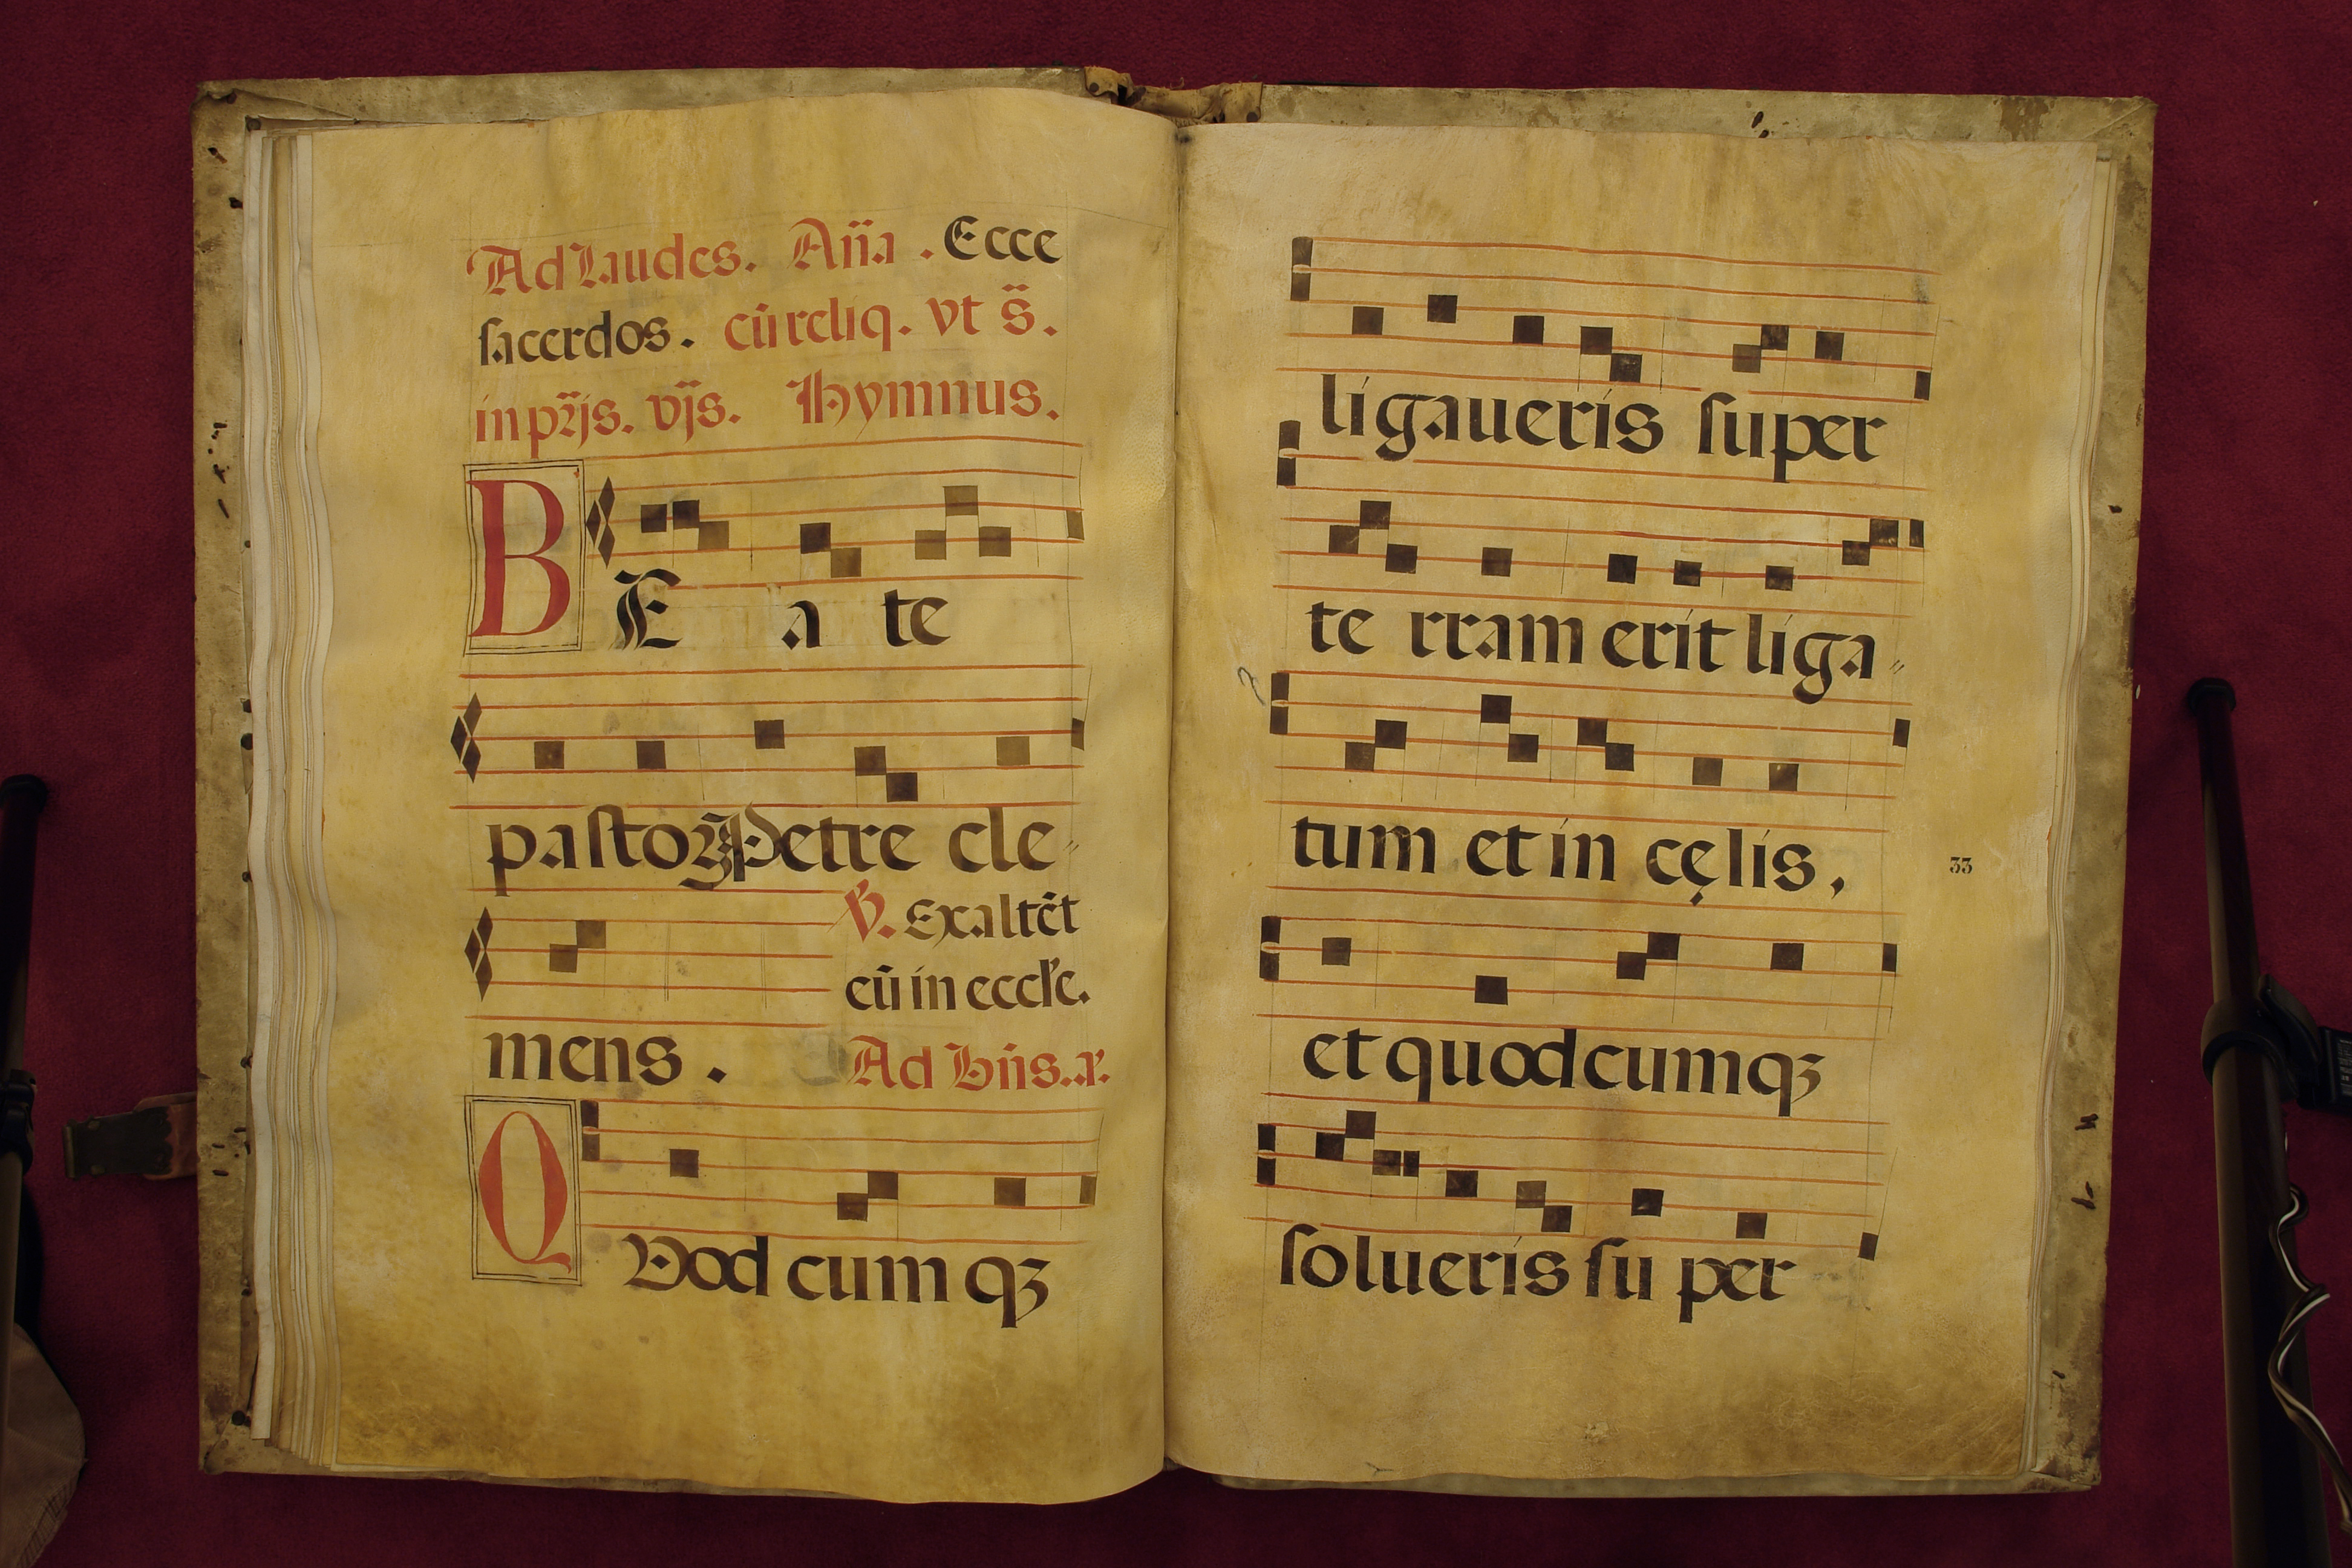 Ad Laudes. Añа. Ecce
sacerdos. cū reliq. vt s̈.
in pr̃js. vĩjs. Hymnus.
BEa te
pastor Petre cle-
℣. Exaltēt
eū in eccl'e.
mens.
Ad Bñs. .r.
QVod cum qꝫ
ligaueris super
te rram erit liga-
tum et in cęlis,
33
et quodcumqꝫ
solueris su per